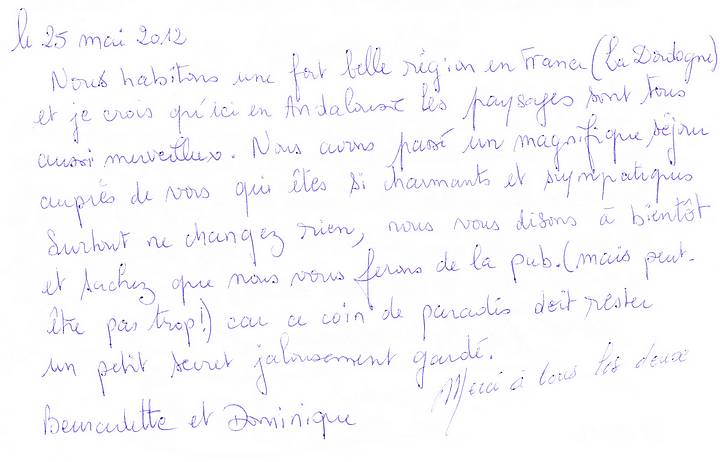 le 25 mai 2012
Nous habitons une fort belle région en France (La Dordogne)
et je crois qu'ici en Andalousie les paysages sont tous
aussi merveilleux. Nous avons passé un magnifique séjour
auprès de vous qui êtes si charmants et sympatiques
Surtout ne changez rien, nous vous disons à bientôt
et sachez que nous vous ferons de la pub. (mais peut-
être pas trop!) car ce coin de paradis doit rester
un petit secret jalousement gardé.
Merci à tous les deux
Bernadette et Dominique